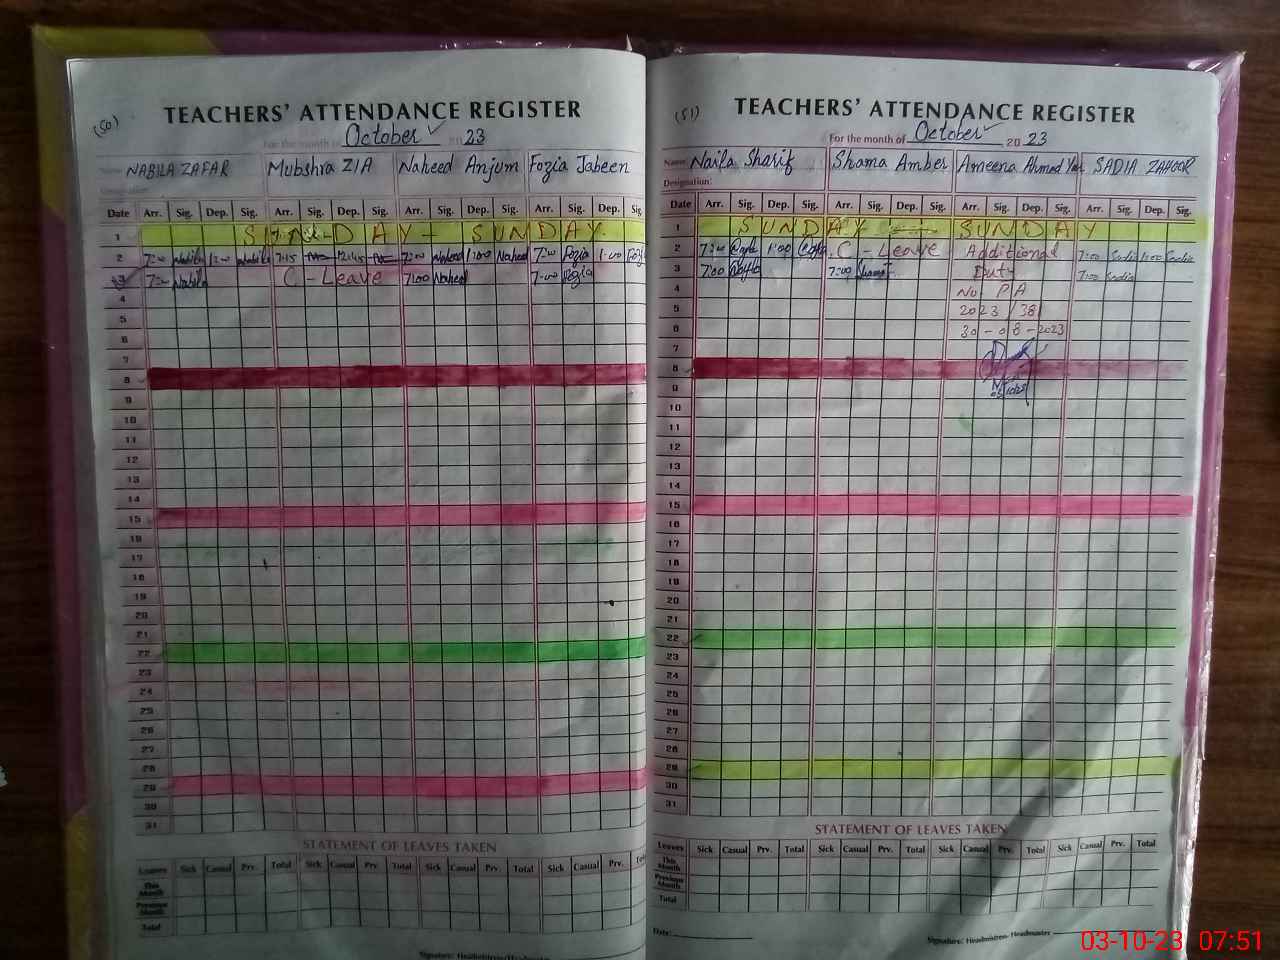 (50)
TEACHERS' ATTENDANCE REGISTER
For the month of October 2023
Name NABILA ZAFAR Mubshra ZIA Naheed Anjum Fozia Jabeen
Designation:
Date Arr. Sig. Dep. Sig. Arr. Sig. Dep. Sig. Arr. Sig. Dep. Sig. Arr. Sig. Dep. Sig.
1 SUNDAY - SUNDAY
2 7:00 Nabila 1:00 Nabila 7:15 12:45 7:00 Naheed 1:00 Naheed 7:00 Fozia 1:00 Fozia
3 7:00 Nabila C - Leave 7:00 Naheed 7:00 Fozia
4
5
6
7
8
9
10
11
12
13
14
15
16
17
18
19
20
21
22
23
24
25
26
27
28
29
30
31
STATEMENT OF LEAVES TAKEN
Leaves Sick Casual Prv. Total Sick Casual Prv. Total Sick Casual Prv. Total Sick Casual Prv.
This Month
Previous Month
Total
Signature: Headmistress/Headmaster
(51)
TEACHERS' ATTENDANCE REGISTER
For the month of October 2023
Name Naila Sharif Shama Amber Ameena Ahmed Yar SADIA ZAHOOR
Designation:
Date Arr. Sig. Dep. Sig. Arr. Sig. Dep. Sig. Arr. Sig. Dep. Sig. Arr. Sig. Dep. Sig.
1 SUNDAY - SUNDAY
2 7:00 1:00 C - Leave Additional 7:00 Sadia 1:00 Sadia
3 7:00 7:00 Shama Duty 7:00 Sadia
4 No. PA
5 2023 / 38
6 30-08-2023
7
8
9
10
11
12
13
14
15
16
17
18
19
20
21
22
23
24
25
26
27
28
29
30
31
STATEMENT OF LEAVES TAKEN
Leaves Sick Casual Prv. Total Sick Casual Prv. Total Sick Casual Prv. Total Sick Casual Prv. Total
This Month
Previous Month
Total
Date:
Signature: Headmistress- Headmaster
03-10-23 07:51